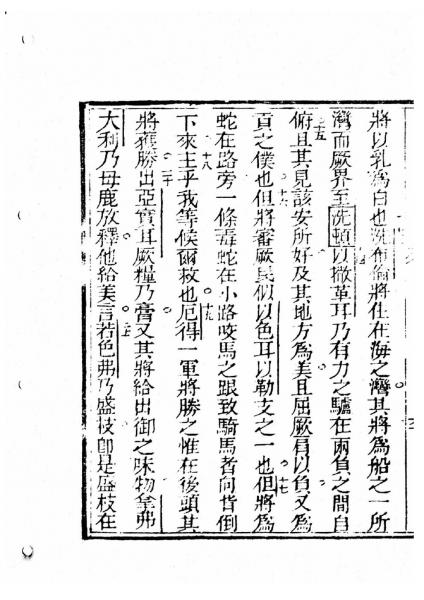 將以乳為白也洗布倫將住在海之灣其將為船之一所
灣而厥界至洗頓以撒革耳乃有力之驢在兩負之間自
俯且其見該安所好及其地方為美且屈厥肩以負又為
貢之僕也但將審厥民似以色耳以勒支之一也但將為
蛇在路旁一條毒蛇在小路咬馬之跟致騎馬者向背倒
下來主乎我等候爾救也厄得一軍將勝之惟在後頭其
將獲勝出亞實耳厥糧乃膏又其將給出御之味物拿弗
大利乃母鹿放釋他給美言若色弗乃盛枝即是盛枝在